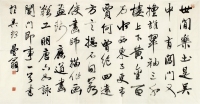 世間樂土是吳
中中有閶門又
擅雄翠袖三千
樓上下黃金百
萬水西東五更市
賈何曾絕四遠
方言總不同若
使畫師描作
畫師應道畫難
閶門即事